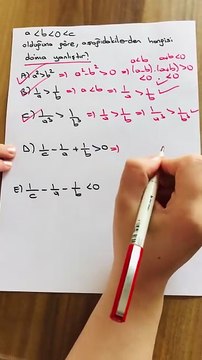 a<b<0<c
olduğuna göre, aşağıdakilerden hangisi
daima yanlıştır?
a<b a+b<0
A) a²>b² ⇒ a²-b²>0 ⇒ (a-b).(a+b)>0
<0 <0
B) 1/a > 1/b ⇒ a<b ⇒ 1/a > 1/b ✓
C) 1/a³ > 1/b³ ⇒ 1/a > 1/b ⇒ 1/a³ > 1/b³ ✓
D) 1/c - 1/a + 1/b > 0 ⇒
E) 1/c - 1/a - 1/b < 0